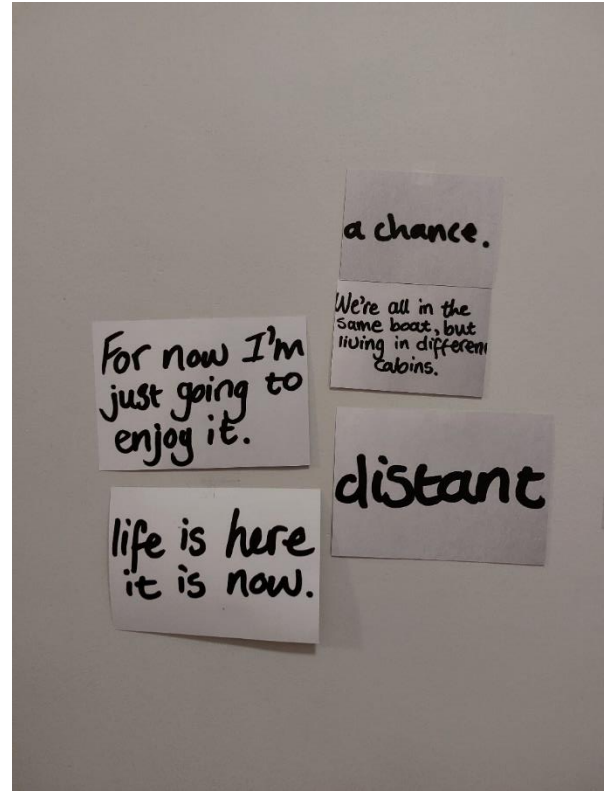 a chance.
We're all in the
same boat, but
living in differen
cabins.
For now I'm
just going to
enjoy it.
distant
life is here
it is now.